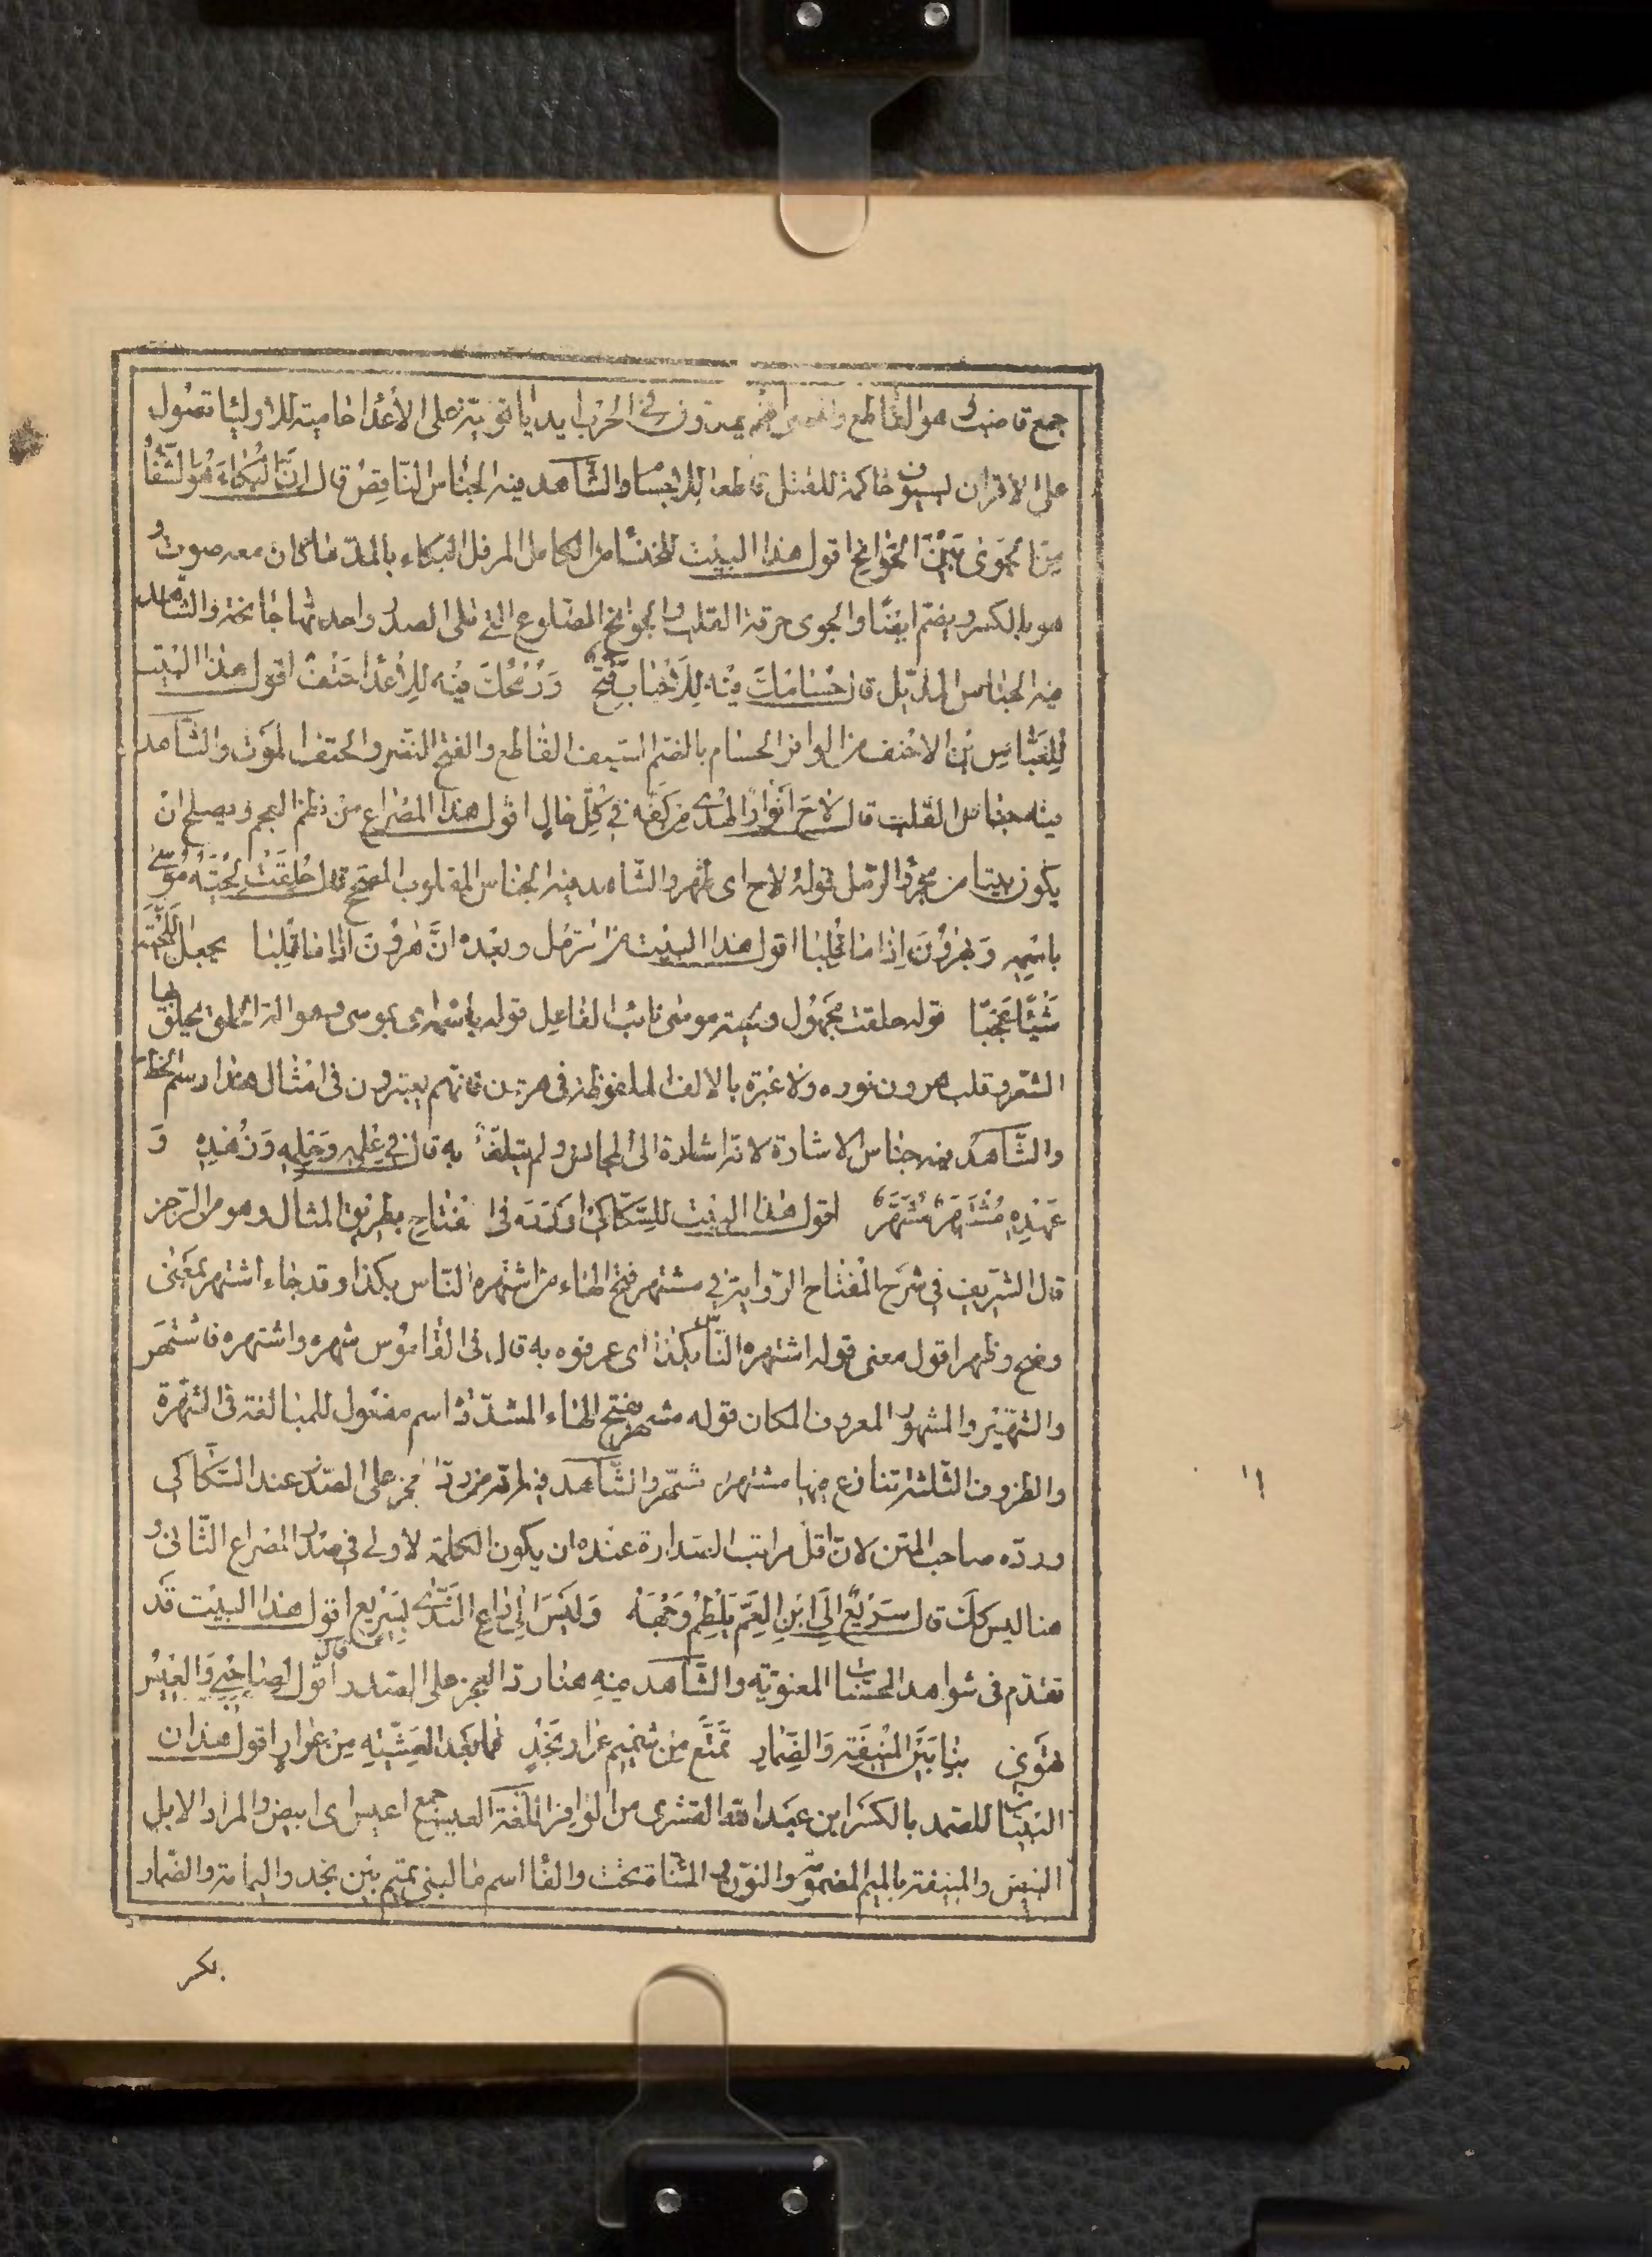 جمع قاضب هو القاطع والمعنى انهم يمدون فى الحرب ايديا قوية على الأعدا حامية للاوليا تصول
على الاقران بسيوف حاكمة للقتل قاطعة للاجسام والشاهد فيه الجناس الناقص قال انَّ البُكاءَ هُوَ الشِّفَاُ
مِنَ الجَوٰى بَيْنَ الجَوٰانِحِ اقول هذا البيت للخنساء من الكامل المرفل البكاء بالمد ما كان معه صوت و
هو بالكسر ويضم ايضًا والجوى حرقة القلب والجوانح الضلوع التى تلى الصدر واحدتها جانحة والشاهد
فيه الجناس المذيّل قال حُسٰامُكَ فيْهِ لِلْاَحْبٰابِ فَتْحٌ وَرُمْحُكَ فيْهِ لِلْاَعْدٰاءِ حَتْفٌ اقول هذا البيت
لِلْعَبّاسِ بْنِ الاحنف من الوافر الحسام بالضم السيف القاطع والفتح النصر والحتف الموت والشاهد
فيه جناس القلب قال لاٰحَ اَنْوارُ الهُدٰى مِنْ كَفِّه فى كُلِّ حٰالٍ اقول هذا المصراع من نظم العجم ويصلح ان
يكون بيتا من مجزو الرمل قوله لاح اى ظهر والشاهد فيه الجناس المقلوب المجنح قال حُلِقَتْ لِحْيَتُهُ مُوسٰى
باسْمِه وَبِهرُونَ اِذٰا مٰا قُلِبٰا اقول هذا البيت من الرمل وبعده انَّ هٰرُونَ اِذٰا مٰا قُلِبٰا يجعل اللِّحْيَةَ
شَيْئًا عَجَبًا قوله حلقت مجهول ولحيته موسى نائب الفاعل قوله باسمه اى بموسى وهو الة الحلق يحلق بها
الشعر وقلب هرون نوره ولا عبرة بالالف الملفوظة فى هرون فانهم يعتبرون فى امثال هذا رسم الخط
والشاهد فيه جناس الاشارة لانه اشارة الى المجانس ولم يتلفظ به قال فى عِلْمِه وَحِلْمِه وَزُهْدِه وَ
عَهْدِه مُشْتَهَرٌ مُشْتَهَرٌ اقول هذا البيت للسكّاكى اوْرَدَه فى المفتاح بطريق المثال وهو من الرجز
قال الشريف فى شرح المفتاح الرواية فى مشتهر فتح الهاء من اشتهره الناس بكذا وقد جاء اشتهر بمعنى
وضح وظهر اقول معنى قوله اشتهره الناس بكذا اى عرفوه به قال فى القاموس شهره واشتهره فاشتهر
والشهير والمشهور المعروف المكان قوله مشهر بفتح الهاء المشددة اسم مفعول للمبالغة فى الشهرة
والظروف الثلثة تنازع فيها مشتهر و مشهر والشاهد فيه انه من رد العجز على الصدر عند السكاكى
ورده صاحب المتن لان اقل مراتب الصدارة عنده ان يكون الكلمة الاولى فى صدر المصراع الثانى و
هنا ليس كك قال سَريعٌ اِلَى ابْنِ العَمِّ يَلْطِمُ وَجْهَهُ وَلَيْسَ اِلٰى دٰاعِى النَّدٰى بِسَرِيعِ اقول هذا البيت قد
تقدم فى شواهد المحسنات المعنوية والشاهد فيه هنا رد العجز على الصدر قال اقُولُ لِصٰاحِبى وَالْعِيسُ
تَهْوِى بِنٰا بَيْنَ المُنيفَةِ وَالضِّمٰارِ تَمَتَّعْ مِنْ شَميمِ عَرٰارِ نَجْدٍ فَمٰا بَعْدَ العَشِيَّةِ مِنْ عَرٰارِ اقول هذان
البيتان للصمة بالكسر ابن عبد الله القشرى من الوافر اللغة العيس جمع اعيس اى ابيض والمراد الابل
البيض والمنيفة بالميم المضمومة والنون والمثناة تحت والفا اسم ما لبنى تميم بين نجد واليمامة والضمار
بكر